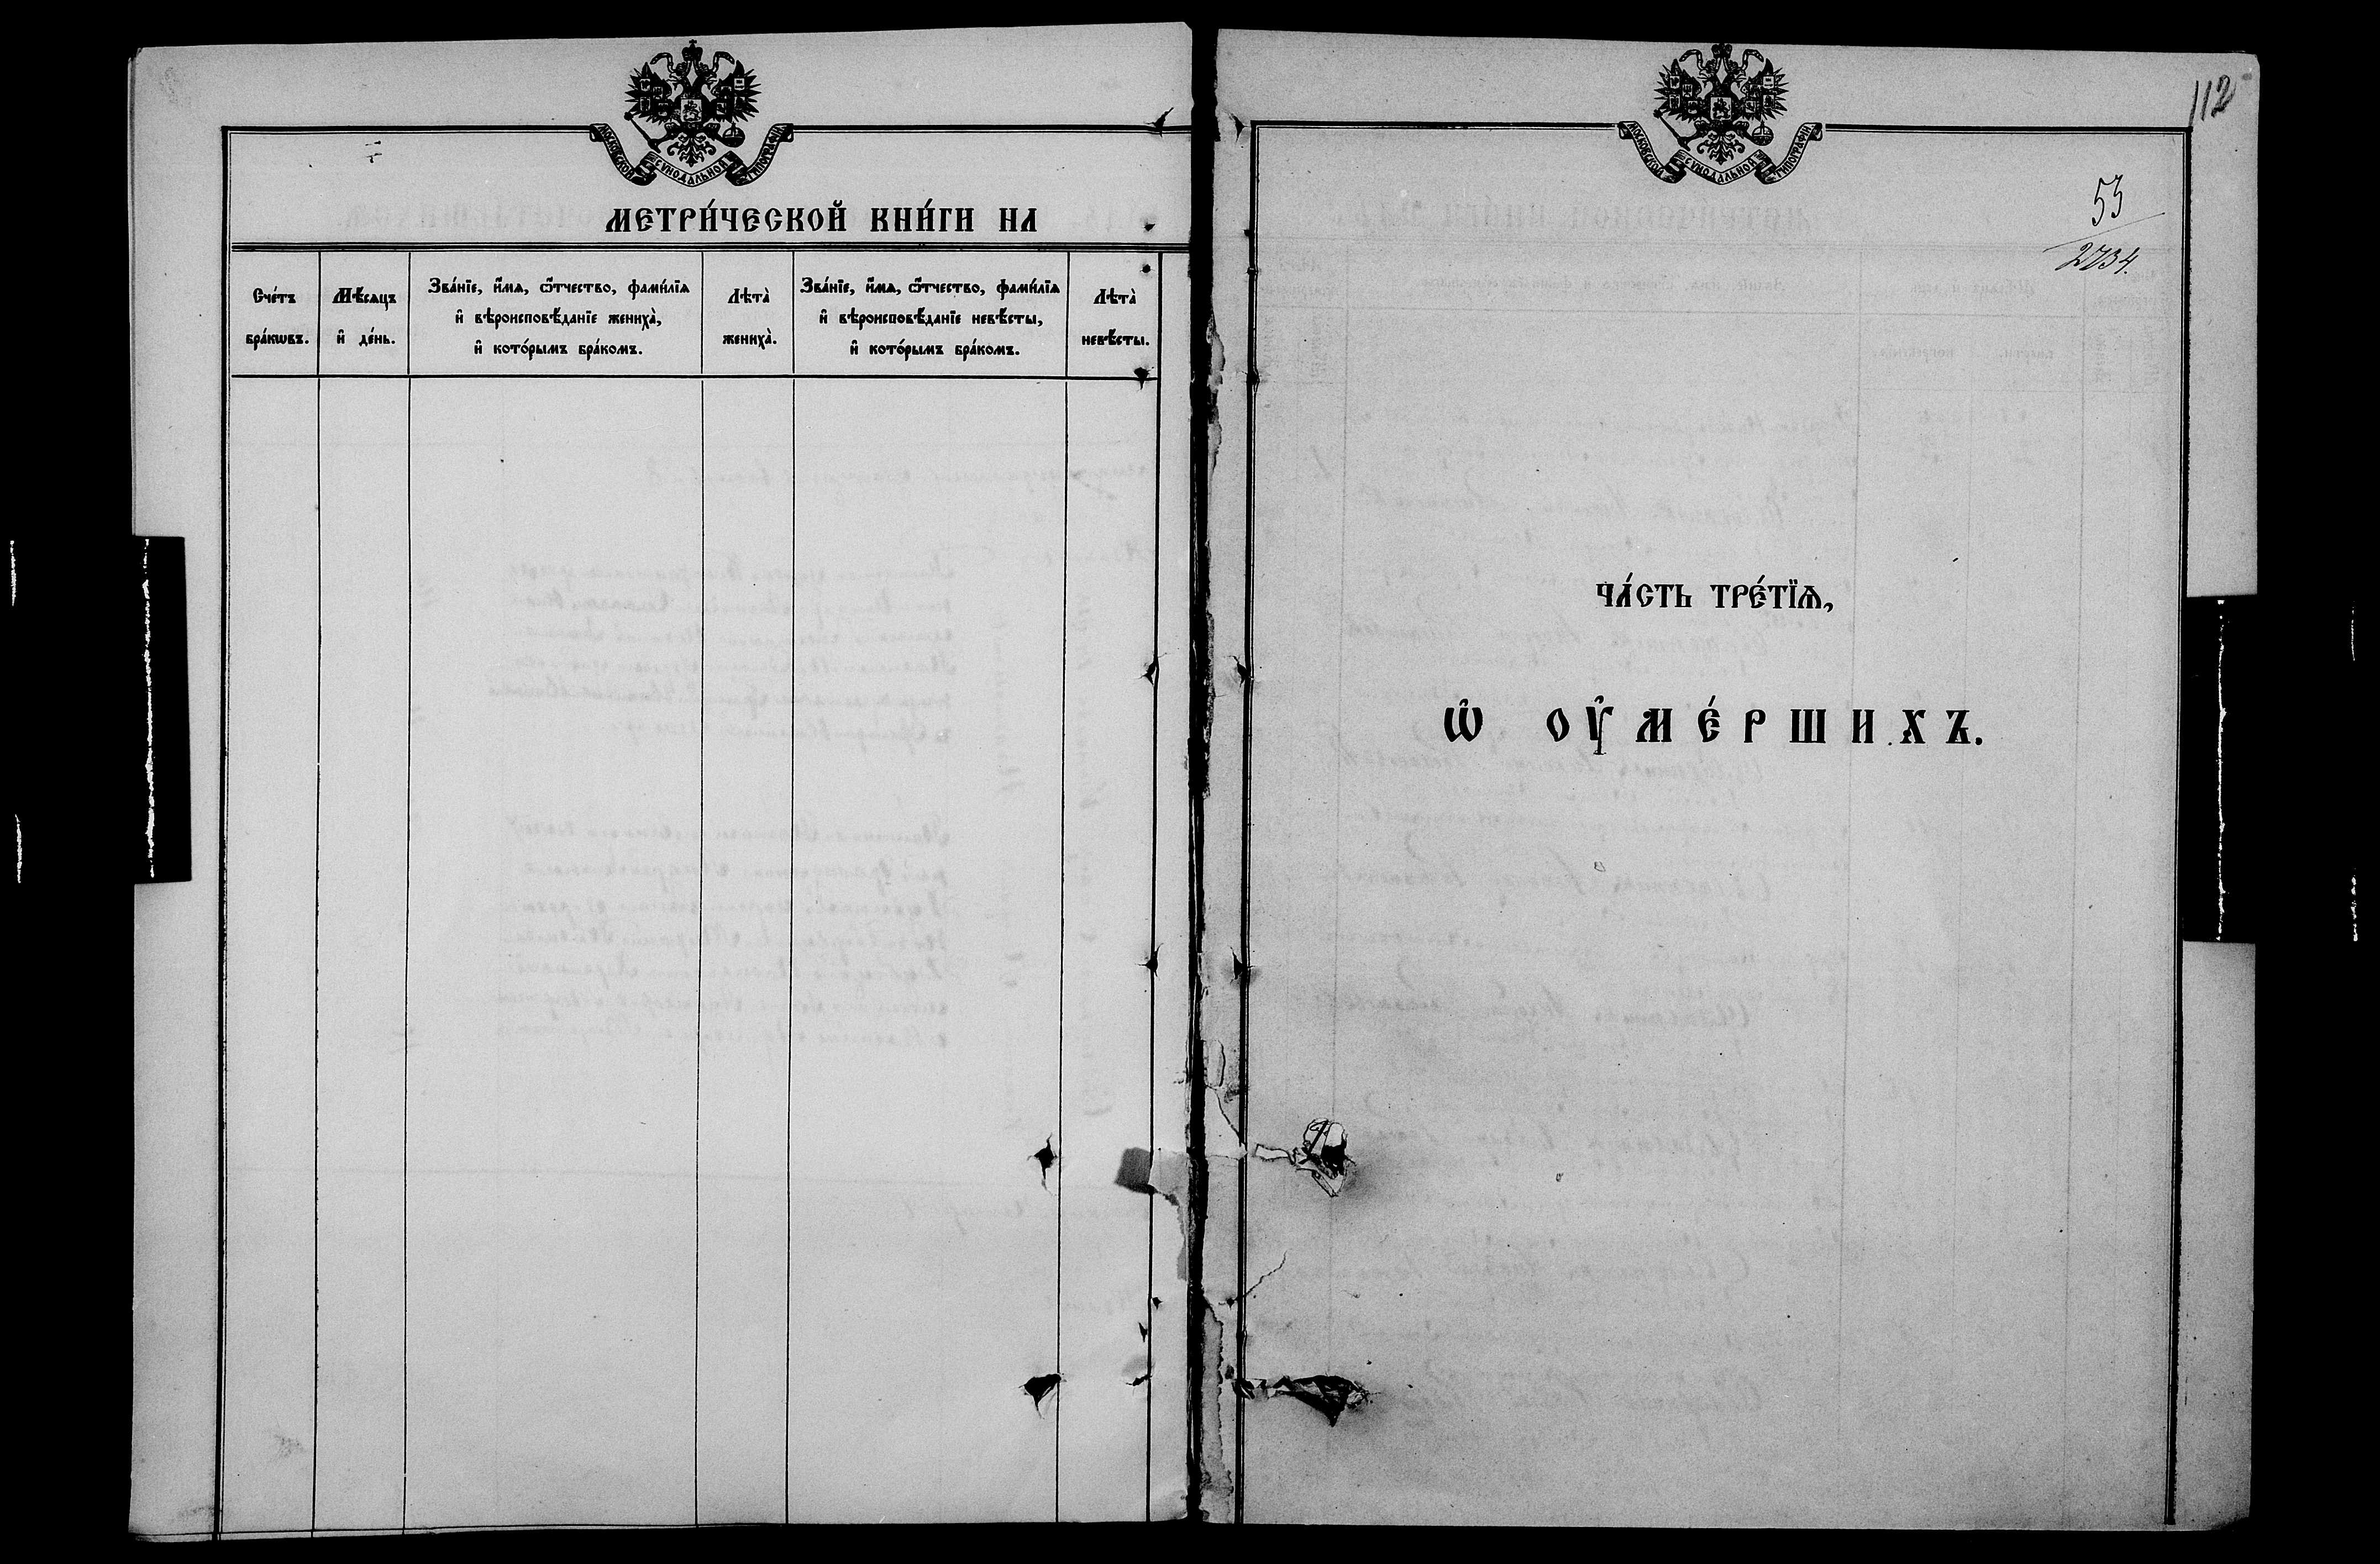 МОСКОВСКОЙ СѴНОДАЛЬНОЙ ТИПОГРАФІИ.
МЕТРИ́ЧЕСКОЙ КНИ́ГИ НА
Сче́тъ
бра́кѡвъ.
Мѣ́сяцъ
и҆ де́нь.
Зва́нїе, и҆́мѧ, ѻ҆́тчество, фами́лїѧ
и҆ вѣроисповѣ́данїе жениха̀,
и҆ кото́рымъ бра́комъ.
Лѣта̀
жениха̀.
Зва́нїе, и҆́мѧ, ѻ҆́тчество, фами́лїѧ
и҆ вѣроисповѣ́данїе невѣ́сты,
и҆ кото́рымъ бра́комъ.
Лѣта̀
невѣ́сты.
МОСКОВСКОЙ СѴНОДАЛЬНОЙ ТИПОГРАФІИ.
112
53
2734.
ЧА́СТЬ ТРЕ́ТЇѦ,
Ѡ҆ ОУ҆МЕ́РШИХЪ.